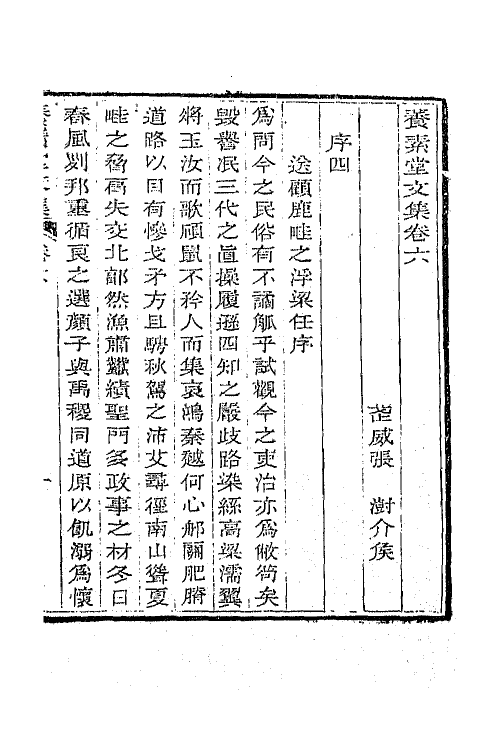 養素堂文集卷六
武威張　澍介侯
序四
送顧鹿畦之浮梁任序
爲問今之民俗有不譎觚乎試觀今之吏治亦爲敝笱矣
毀譽泯三代之直操履遜四知之嚴歧路染絲高梁濡翼
將玉汝而歌碩鼠不矜人而集哀鴻秦越何心邮關肥瘠
道路以目有慘戈矛方且騁秋駕之沛艾尋徑南山聳夏
畦之脅高失交北部然漁肅獻績聖門多政事之材冬日
春風劉邦重循良之選顏子與禹稷同道原以飢溺爲懷
養素堂文集　卷六　一